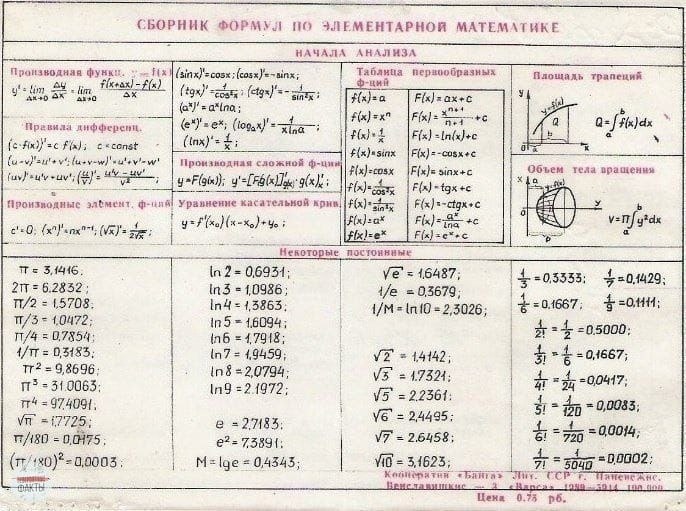 СБОРНИК ФОРМУЛ ПО ЭЛЕМЕНТАРНОЙ МАТЕМАТИКЕ
НАЧАЛА АНАЛИЗА
Производная функц. y=f(x)
y'=lim Δx→0 Δy/Δx = lim Δx→0 (f(x+Δx)-f(x))/Δx
Правила дифференц.
(c·f(x))'=c f'(x); c=const
(u-v)'=u'+v'; (u+v-w)'=u'+v'-w'
(uv)'=u'v+uv'; (u/v)'=(u'v-uv')/v²;
Производные элемент. ф-ций
c'=0; (xⁿ)'=nxⁿ⁻¹; (√x)'=1/(2√x);
(sinx)'=cosx; (cosx)'=-sinx;
(tgx)'=1/cos²x; (ctgx)'=-1/sin²x;
(aˣ)'=aˣlna;
(eˣ)'=eˣ; (logₐx)'=1/(xlna);
(lnx)'=1/x;
Производная сложной ф-ции
y=F(g(x)); y'=[F(g(x))]'g(x)·g(x)'x;
Уравнение касательной крив.
y=f'(x₀)(x-x₀)+y₀;
Таблица первообразных
ф-ций
f(x)=a F(x)=ax+c
f(x)=xⁿ F(x)=xⁿ⁺¹/(n+1)+c
f(x)=1/x F(x)=ln(x)+c
f(x)=sinx F(x)=-cosx+c
f(x)=cosx F(x)=sinx+c
f(x)=1/cos²x F(x)=tgx+c
f(x)=1/sin²x F(x)=-ctgx+c
f(x)=aˣ F(x)=aˣ/lna+c
f(x)=eˣ F(x)=eˣ+c
Площадь трапеций
y
y=f(x)
Q
a b x
Q=∫ₐᵇf(x)dx
Объем тела вращения
x
a
y=f(x)
y
b
V=π∫ₐᵇy²dx
Некоторые постоянные
π=3.1416;
2π=6.2832;
π/2=1.5708;
π/3=1.0472;
π/4=0.7854;
1/π=0.3183;
π²=9,8696;
π³=31.0063;
π⁴=97.4091;
√π=1,7725;
π/180=0,0175;
(π/180)²=0,0003;
ln2=0,6931;
ln3=1,0986;
ln4=1,3863;
ln5=1,6094;
ln6=1,7918;
ln7=1,9459;
ln8=2,0794;
ln9=2.1972;
e=2,7183;
e²=7.3891;
M=lge=0,4343;
√e=1,6487;
1/e=0,3679;
1/M=ln10=2,3026;
√2=1,4142;
√3=1.7321;
√5=2.2361;
√6=2,4495;
√7=2.6458;
√10=3,1623;
1/3=0,3333; 1/7=0,1429;
1/6=0,1667; 1/9=0,1111;
1/2!=1/2=0,5000;
1/3!=1/6=0,1667;
1/4!=1/24=0,0417;
1/5!=1/120=0,0083;
1/6!=1/720=0,0014;
1/7!=1/5040=0,0002;
Кооператив «Банга» Лит. ССР г. Паневежис.
3. «Варса» 1989—5914 100.000
Цена 0.75 рб.
ФАКТЫ